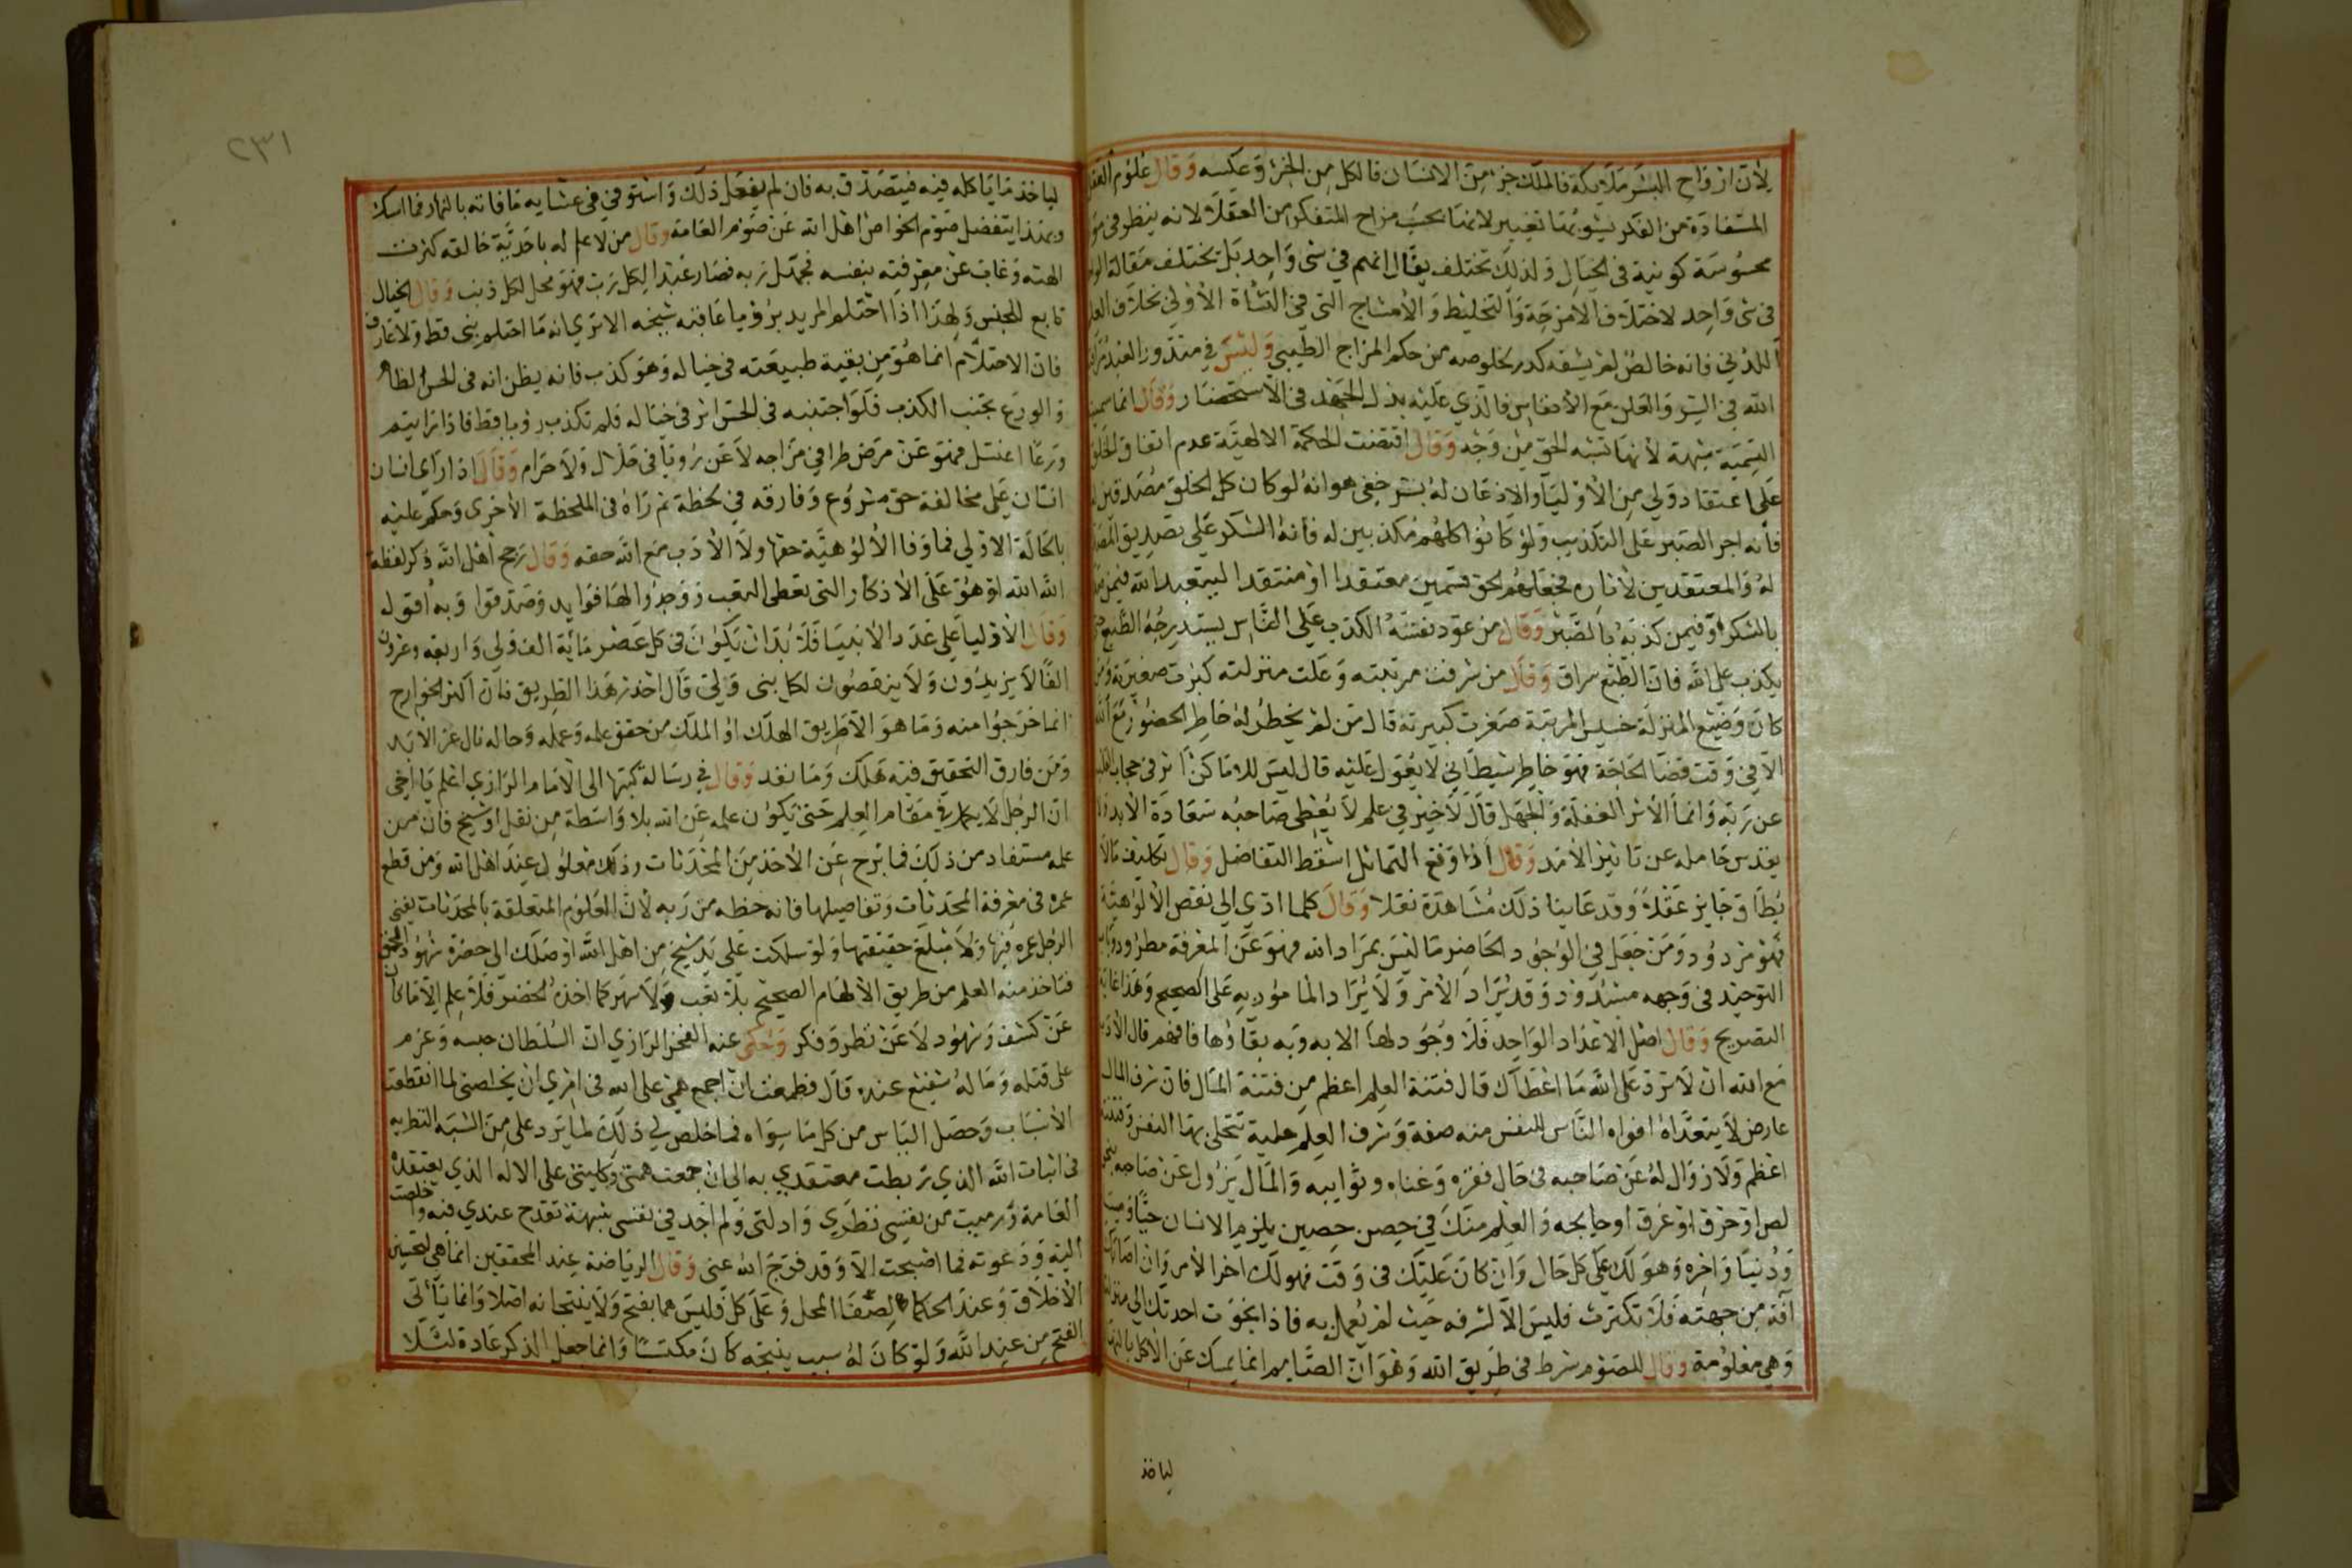 لأن ارواح البشر ملايكة فالملك جزء من الانسان فالكل من الجزء وعكسه وقال علوم
المستفادة من الفكر يشوبها تغيير لانها بحسب مزاج المتفكر من العقلا لانه ينظر في
محسوسة كونية في الخيال ولذلك تختلف يقال انهم في شي واحد بل تختلف مقالة
في شي واحد لاختلاف الامزجة والتخليط والامشاج التي في النشاة الاولي بخلاف
اللدني فانه خالص لم يشبه كدر لخلوصه من حكم المزاج الطبيعي وليس في مقدور العبد
الله في السر والعلن مع الأنفاس فالذي عليه بذل الجهد في الاستحضار وقال انما سميت
الشبهة شبهة لأنها تشبه الحق من وجه وقال اقتضت الحكمة الالهية عدم اتفاق الخلق
على اعتقاد ولي من الأوليا والاذعان له بسر خفي هو انه لو كان كل الخلق مصدقين
فاته اجر الصبر على التكذيب ولو كانوا كلهم مكذبين له فاته الشكر على تصديق
له والمعتقدين لاثاره فجعلهم الحق قسمين معتقدا او منتقدا ليتعبد الله فيمن
بالشكر وفيمن كذبه بالصبر وقال من عود نفسه الكذب على الناس يستدرجه الطبع
يكذب على الله فان الطبع سراق وقال من شرفت مرتبته وعلت منزلته كبرت صغيرته
كان وضيع المنزلة خسيس المرتبة صغرت كبيرته قال من لم يخطر له خاطر الحضور مع الله
الا في وقت قضا الحاجة فهو خاطر شيطاني لا يعول عليه قال ليس للاماكن اثر في حجاب
عن ربه وانما الأثر الغفلة والجهل قال لا خير في علم لا يعطي صاحبه سعادة الأبد
يقدس حامله عن تاثير الأمد وقال اذا وقع التماثل اسقط التفاضل وقال تكليف ما لا
يطاق جايز عقلا وقد عاينا ذلك مشاهدة نقلا وقال كلما ادي الي نقص الألوهية
فهو مردود ومن جعل في الوجود الحاضر ما ليس بمراد الله فهو عن المعرفة مطرود وباب
التوحيد في وجهه مسدود وقد يراد الأمر ولا يراد المامور به على الصحيح وهذا غاية
التصريح وقال اصل الاعداد الواحد فلا وجود لها الا به وبه بقاؤها فافهم قال الأدب
مع الله ان لا ترد على الله ما اعطاك قال فتنة العلم اعظم من فتنة المال فان شرف المال
عارض لا يتعداه افواه الناس للنفس منه صفة وشرف العلم حلية تتحلى بها النفس وفتنته
اعظم ولا زوال له عن صاحبه في حال فقره وغناه ونوايبه والمال يزول عن صاحبه
لص او حرق او غرق او حايجه والعلم منك في حصن حصين يلزم الانسان حيا وميتا
ودنيا واخره وهو لك على كل حال وان كان عليك في وقت فهو لك اخر الأمر وان اصابتك
آفة من جهته فلا تكترث فليس الا لشرفه حيث لم يعمل به فاذا نجوت اخذتك الي منزلته
وهي معلومة وقال للصوم شرط في طريق الله وهو ان الصايم انما يمسك عن الاكل بالنهار
لياخذ
٢٣١
لياخذ ما ياكله فيه فيتصدق به فان لم يفعل ذلك واستوفي في عشايه ما فاته بالنهار فما امسك
وبهذا يتفضل صوم الخواص اهل الله عن صوم العامة وقال من لا علم له باحدية خالقه كثرت
الهته وغاب عن معرفته بنفسه فجهل ربه فصار عبدا لكل رب فهو محل لكل ذنب وقال الخيال
تابع للجنس ولهذا اذا احتلم المريد برؤيا عاقبه شيخه الا تري انه ما احتلم نبي قط ولا عارف
فان الاحتلام انما هو من بقية طبيعته في خياله وهو كذب فانه يظن انه في الحس الظاهر
والورع بجنب الكذب فلو اجتنبه في الحس اثر في خياله فلم تكذب رؤيا قط فاذا رايتم
ورعا اغتسل فهو عن مرض طرا في مزاجه لا عن رؤيا في حلال ولا حرام وقال اذا راى انسان
انسان على مخالفة حق مشروع وفارقه في لحظة ثم راه في اللحظة الأخرى وحكم عليه
بالحالة الاولي فما وفا الألوهية حقها ولا الأدب مع الله حقه وقال رجح اهل الله ذكر لفظة
الله الله او هو على الأذكار التي تعطي التعب ووجدوا لها فوايد وصدقوا وبه اقول
وقال الأوليا على عدد الأنبيا فلا بد ان يكون في كل عصر ماية الف ولي واربعة وعشرون
الفا لا يزيدون ولا ينقصون لكل نبي ولي قال احذر هذا الطريق فان اكثر الخوارج
انما خرجوا منه وما هو الا طريق الهلك او الملك من حقق علمه وعمله وحاله نال عز الأبد
ومن فارق التحقيق فيه هلك وما نفد وقال في رسالة كتبها الى الامام الرازي اعلم يا اخي
ان الرجل لا يكمل في مقام العلم حتى يكون علمه عن الله بلا واسطة من نقل او شيخ فان من
علمه مستفاد من ذلك فما برح عن الأخذ من المحدثات وذلك معلول عند اهل الله ومن قطع
عمره في معرفة المحدثات وتفاصيلها فاته حظه من ربه لأن العلوم المتعلقة بالمحدثات يفني
الرجل عمره فيها ولا يبلغ حقيقتها ولو سلكت على يد شيخ من اهل الله اوصلك الى حضرة شهود الحق
فتاخذ منه العلم من طريق الألهام الصحيح بلا تعب ولا سهر كما اخذه الخضر فلا علم الا ما كان
عن كشف وشهود لا عن نظر وفكر وحكى عنه الفخر الرازي ان السلطان حبسه وعزم
على قتله وما له شفيع عنده قال فطمعت ان اجمع همي على الله في امري ان يخلصني لما انقطعت
الأسباب وحصل الياس من كل ما سواه فما خلص لي ذلك لما يرد علي من الشبه النظريه
في اثبات الله الذي ربطت معتقدي به الي ان جمعت همتي وكليتي على الاله الذي يعتقده
العامة ورميت من نفسي نظري وادلتي ولم اجد في نفسي شبهة تقدح عندي فيه واخلصت
اليه ودعوته فما اصبحت الا وقد فرج الله عني وقال الرياضة عند المحققين انما هي لتحسين
الأخلاق وعند الحكما لصفا المحل وعلى كل فليس هما بفتح ولا ينتجانه اصلا وانما يتأتى
الفتح من عند الله ولو كان له سبب ينتجه كان مكتسبا وانما جعل الذكر عادة لئلا